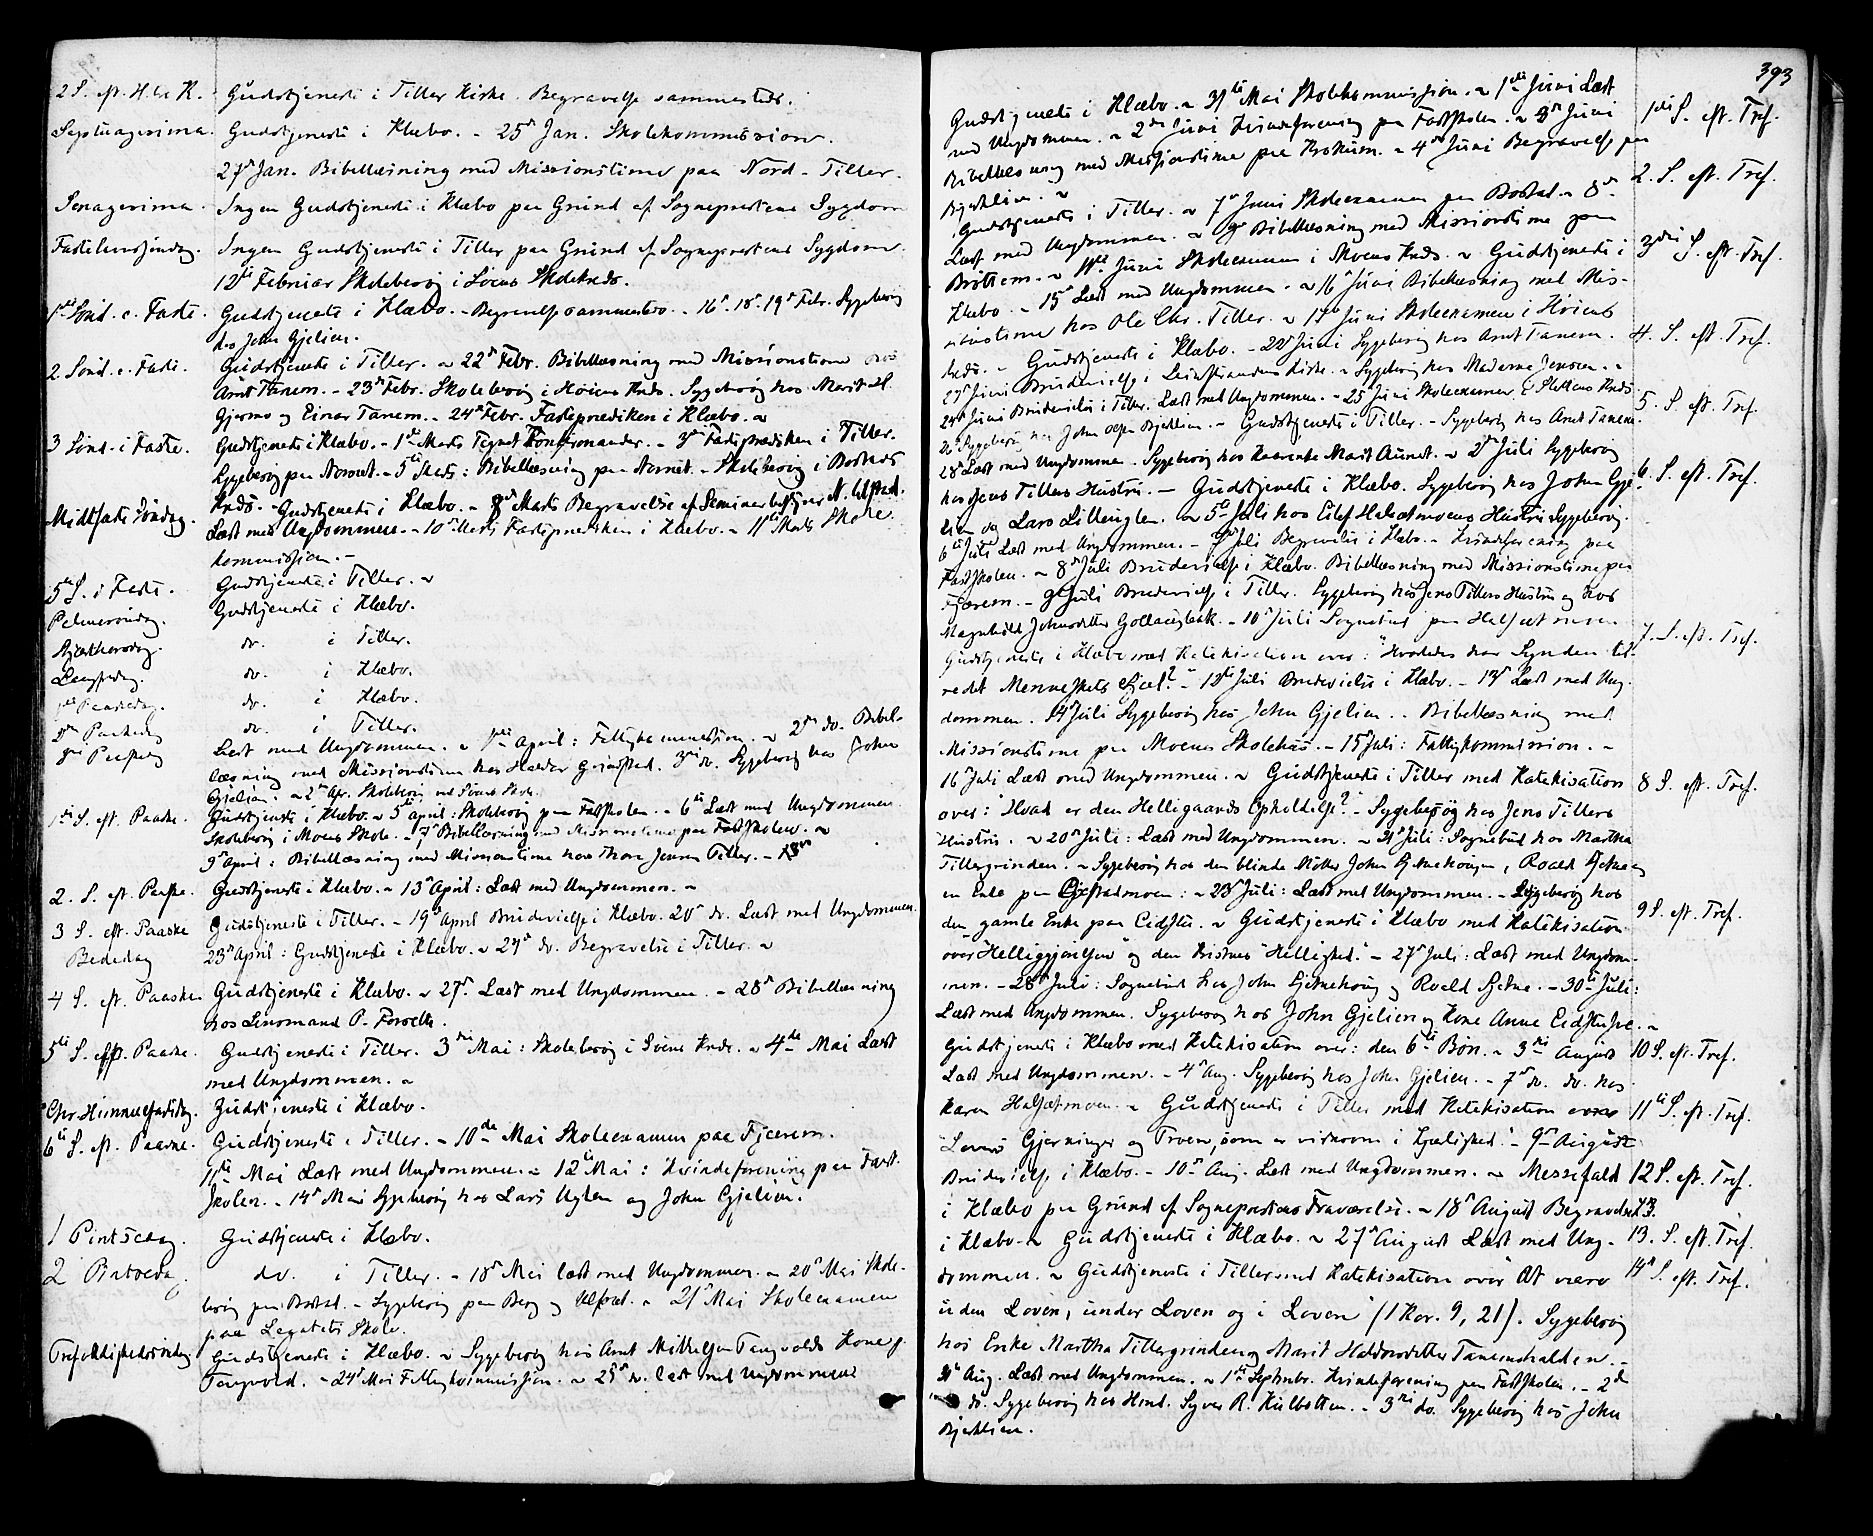 2 S. eft. H. 3 K. Gudstjeneste i Tiller Kirke. Begravelse sammesteds.
Septuagesima. Gudstjeneste i Klæbo. - 25de Jan. Skolekommission.
27de Jan. Bibellæsning med Missionstime paa Nord-Tiller.
Sexagesima. Ingen Gudstjeneste i Klæbo paa Grund af Sognepræstens Sygdom
Fastelavnssøndag. Ingen Gudstjeneste i Tiller paa Grund af Sognepræstens Sygdom.
12te Februar Skolebesøg i Skolekreds.
1ste Sønd. i Faste. Gudstjeneste i Klæbo. - Begravelse sammesteds. - 16de 18de 19de Febr. Sygebesøg
hos John Gjelien.
2 Sønd. i Faste. Gudstjeneste i Tiller. - 22de Febr. Bibellæsning med Missionstime hos
Arnt Tanem. - 23de Febr. Skolebesøg i Kreds. Sygebesøg hos Marit H.
Gjermo og Einar Tanem. - 24de Febr. Fasteprædiken i Klæbo. -
3 Sønd. i Faste. Gudstjeneste i Klæbo. - 1ste Marts Tegnet Konfirmander. - 3die Fasteprædiken i Tiller.
Sygebesøg paa - 5te Marts: Bibellæsning paa - Skolebesøg i Bostads
Kreds. - Gudstjeneste i Klæbo. - 8de Marts Begravelse af Seminarbestyrer
Midtfaste Søndag. Læst med Ungdommen. - 10de Marts Fasteprædiken i Klæbo. - 11te Marts Skole-
kommission. -
5te S. i Faste. Gudstjeneste i Tiller. -
Palmesøndag. Gudstjeneste i Klæbo.
Skjærthorsdag. do. i Tiller.
Langfredag. do. i Klæbo.
1ste Paaskedag. do. i Klæbo.
2den Paaskedag do. i Tiller.
3die Paaskedag Læst med Ungdommen. - 1ste April: Fattigkommission. - 2den do. Bibel-
læsning med Missionstime hos Haldor Grindstad. 3die do. Sygebesøg hos John
Gjelien. - 2den Apr. Skolebesøg
1ste S. eft. Paaske. Gudstjeneste i Klæbo. - 5te April: Skolebesøg paa Fastskolen. - 6te Læst med Ungdommen
Skolebesøg i Moens Skole. - 7de Bibellæsning med Missionstime paa Fastskolen. -
9de April: Bibellæsning med Missionstime hos Thore Jensen Tiller. -
2. S. eft. Paaske. Gudstjeneste i Klæbo. - 13de April: Læst med Ungdommen. -
3 S. eft. Paaske Gudstjeneste i Tiller. - 19de April Brudevielse i Klæbo. 20de do. Læst med Ungdommen.
Bededag 23de April: Gudstjeneste i Klæbo. - 24de do. Begravelse i Tiller. -
4 S. eft. Paaske. Gudstjeneste i Klæbo. - 27de Læst med Ungdommen. - 28de Bibellæsning
hos Lensmand P. Forseth.
5te S. eft. Paaske. Gudstjeneste i Tiller. 3die Mai: Skolebesøg i Kreds. - 4de Mai Læst
med Ungdommen. -
Chr. Himmelfartsdag. Gudstjeneste i Klæbo.
6te S. eft. Paaske. Gudstjeneste i Tiller. - 10de Mai Skoleexamen paa Fjærem.
11te Mai Læst med Ungdommen. - 12te Mai: Kvindeforening paa Fast-
skolen. - 14de Mai Sygebesøg hos Lars Uglen og John Gjelien.
1 Pintsedag. Gudstjeneste i Klæbo.
2 Pintsedag do. i Tiller. - 18de Mai læst med Ungdommen. - 20de Mai Skole-
besøg paa Bostad. - Sygebesøg paa Berg og Ulstad. - 21de Mai Skoleexamen
paa Legatets Skole.
Trefoldighedssøndag Gudstjeneste i Klæbo. - Sygebesøg hos Arnt Mikkelsen Tangvolds Kone paa
Tangvold. - 24de Mai Fattigkommission. - 25de do. læst med Ungdommen
393
Gudstjeneste i Klæbo. - 31te Mai Skolekommission. - 1ste Juni Læst 1ste S. eft. Tref.
med Ungdommen. - 2den Juni Kvindeforening paa Fastskolen. - 3die Juni
Bibellæsning med Missionstime paa Krokum. - 4de Juni Begravelse paa
Bjerklien. -
Gudstjeneste i Tiller. - 7de Juni Skoleexamen paa Bostad. - 8de 2. S. eft. Tref.
Læst med Ungdommen. - 9de Bibellæsning med Missionstime paa
Brøttem. - 11te Juni Skoleexamen i Moens Kreds. - Gudstjeneste i 3die S. eft. Tref.
Klæbo. - 15de Læst med Ungdommen. - 16de Juni Bibellæsning med Mis-
sionstime hos Ole Chr. Tiller. - 17de Juni Skoleexamen i
Kreds. - Gudstjeneste i Klæbo. - 20de Juni Sygebesøg hos Arnt Tanem. 4. S. eft. Tref.
Juni Brudevielse i Leinstrandens Kirke. - Sygebesøg hos Madame Jensen. -
24de Juni Brudevielse i Tiller. Læst med Ungdommen. - 25de Juni Skoleexamen i Slettens Kreds.
26de Sygebesøg hos John Olsen Bjerklien. - Gudstjeneste i Tiller. - Sygebesøg hos Arnt Tanem. 5. S. eft. Tref.
28de Læst med Ungdommen. Sygebesøg hos Marit Aunet. - 2den Juli Sygebesøg
hos Jens Tillers Hustru. - Gudstjeneste i Klæbo. Sygebesøg hos John Gje- 6. S. eft. Tref.
lien og Lars Lilleuglen. - 5te Juli hos Eilef Halsetmoens Hustru Sygebesøg.
6te Juli Læst med Ungdommen. - 7de Juli Begravelse i Klæbo. - Kvindeforening paa
Fastskolen. - 8de Juli Brudevielse i Klæbo. Bibellæsning med Missionstime paa
Fjærem. - 9de Juli Brudevielse i Tiller. Sygebesøg hos Jens Tillers Hustru og hos
Magnhild Johnsdatter Gollaugbakk. - 10de Juli Sognebud paa Halsetmoen.
Gudstjeneste i Klæbo med Katekisation over: "Hvorledes har Synden til- 7. S. eft. Tref.
redet Menneskets Sjæl?" - 12te Juli Brudevielse i Klæbo. - 13de Læst med Ung-
dommen. 14de Juli Sygebesøg hos John Gjelien. . Bibellæsning med
Missionstime paa Moens Skolehus. - 15de Juli: Fattigkommission. -
16de Juli Læst med Ungdommen. - Gudstjeneste i Tiller med Katekisation 8 S. eft. Tref.
over: Hvad er den Helligaands Opholdelse? - Sygebesøg hos Jens Tillers
Hustru. - 20de Juli: Læst med Ungdommen. - 21de Juli: Sognebud hos Martha
Tillergrinden. - Sygebesøg hos den blinde Møller John Sjetnehaugen, Roald Sjetne og
en Enke paa - 23de Juli: Læst med Ungdommen. - Sygebesøg hos
den gamle Enke paa Eidstu. - Gudstjeneste i Klæbo med Katekisation 9 S. eft. Tref.
over "Helliggjørelsen" og den Kristnes "Hellighed". - 27de Juli: Læst med Ungdom-
men. - 28de Juli: Sognebud hos John Sjetnehaug og Roald Sjetne. - 30te Juli:
Læst med Ungdommen. Sygebesøg hos John Gjelien og Kone Anne Eidstu
Gudstjeneste i Klæbo med Katekisation over: den 6te Bøn. - 3die August 10 S. eft. Tref.
Læst med Ungdommen. - 4de Aug. Sygebesøg hos John Gjelien. - 7de do. do. hos
Karen Halsetmoen. - Gudstjeneste i Tiller med Katekisation over 11te S. eft. Tref.
"Lovens Gjerninger og Troen, som er virksom i Kjærlighed". - 9de August
Brudevielse i Klæbo. - 10de Aug. Læst med Ungdommen. - Messefald 12 S. eft. Tref.
i Klæbo paa Grund af Sognepræstens Fraværelse. - 18de August Begravelse
i Klæbo. - Gudstjeneste i Klæbo. - 27de August Læst med Ung- 13. S. eft. Tref.
dommen. - Gudstjeneste i Tiller med Katekisation over "At være 14de S. eft. Tref.
uden Loven, under Loven og i Loven" (1 Kor. 9, 21). Sygebesøg
hos Enke Martha Tillergrinden og Marit Haldorsdatter Tanemshalden. -
31te Aug. Læst med Ungdommen. - 1ste Septembr. Kvindeforening paa Fastskolen. - 2den
do. Sygebesøg hos Hmd. Syver R. Hulbekken. - 3die do. Sygebesøg hos John
Bjerklien.